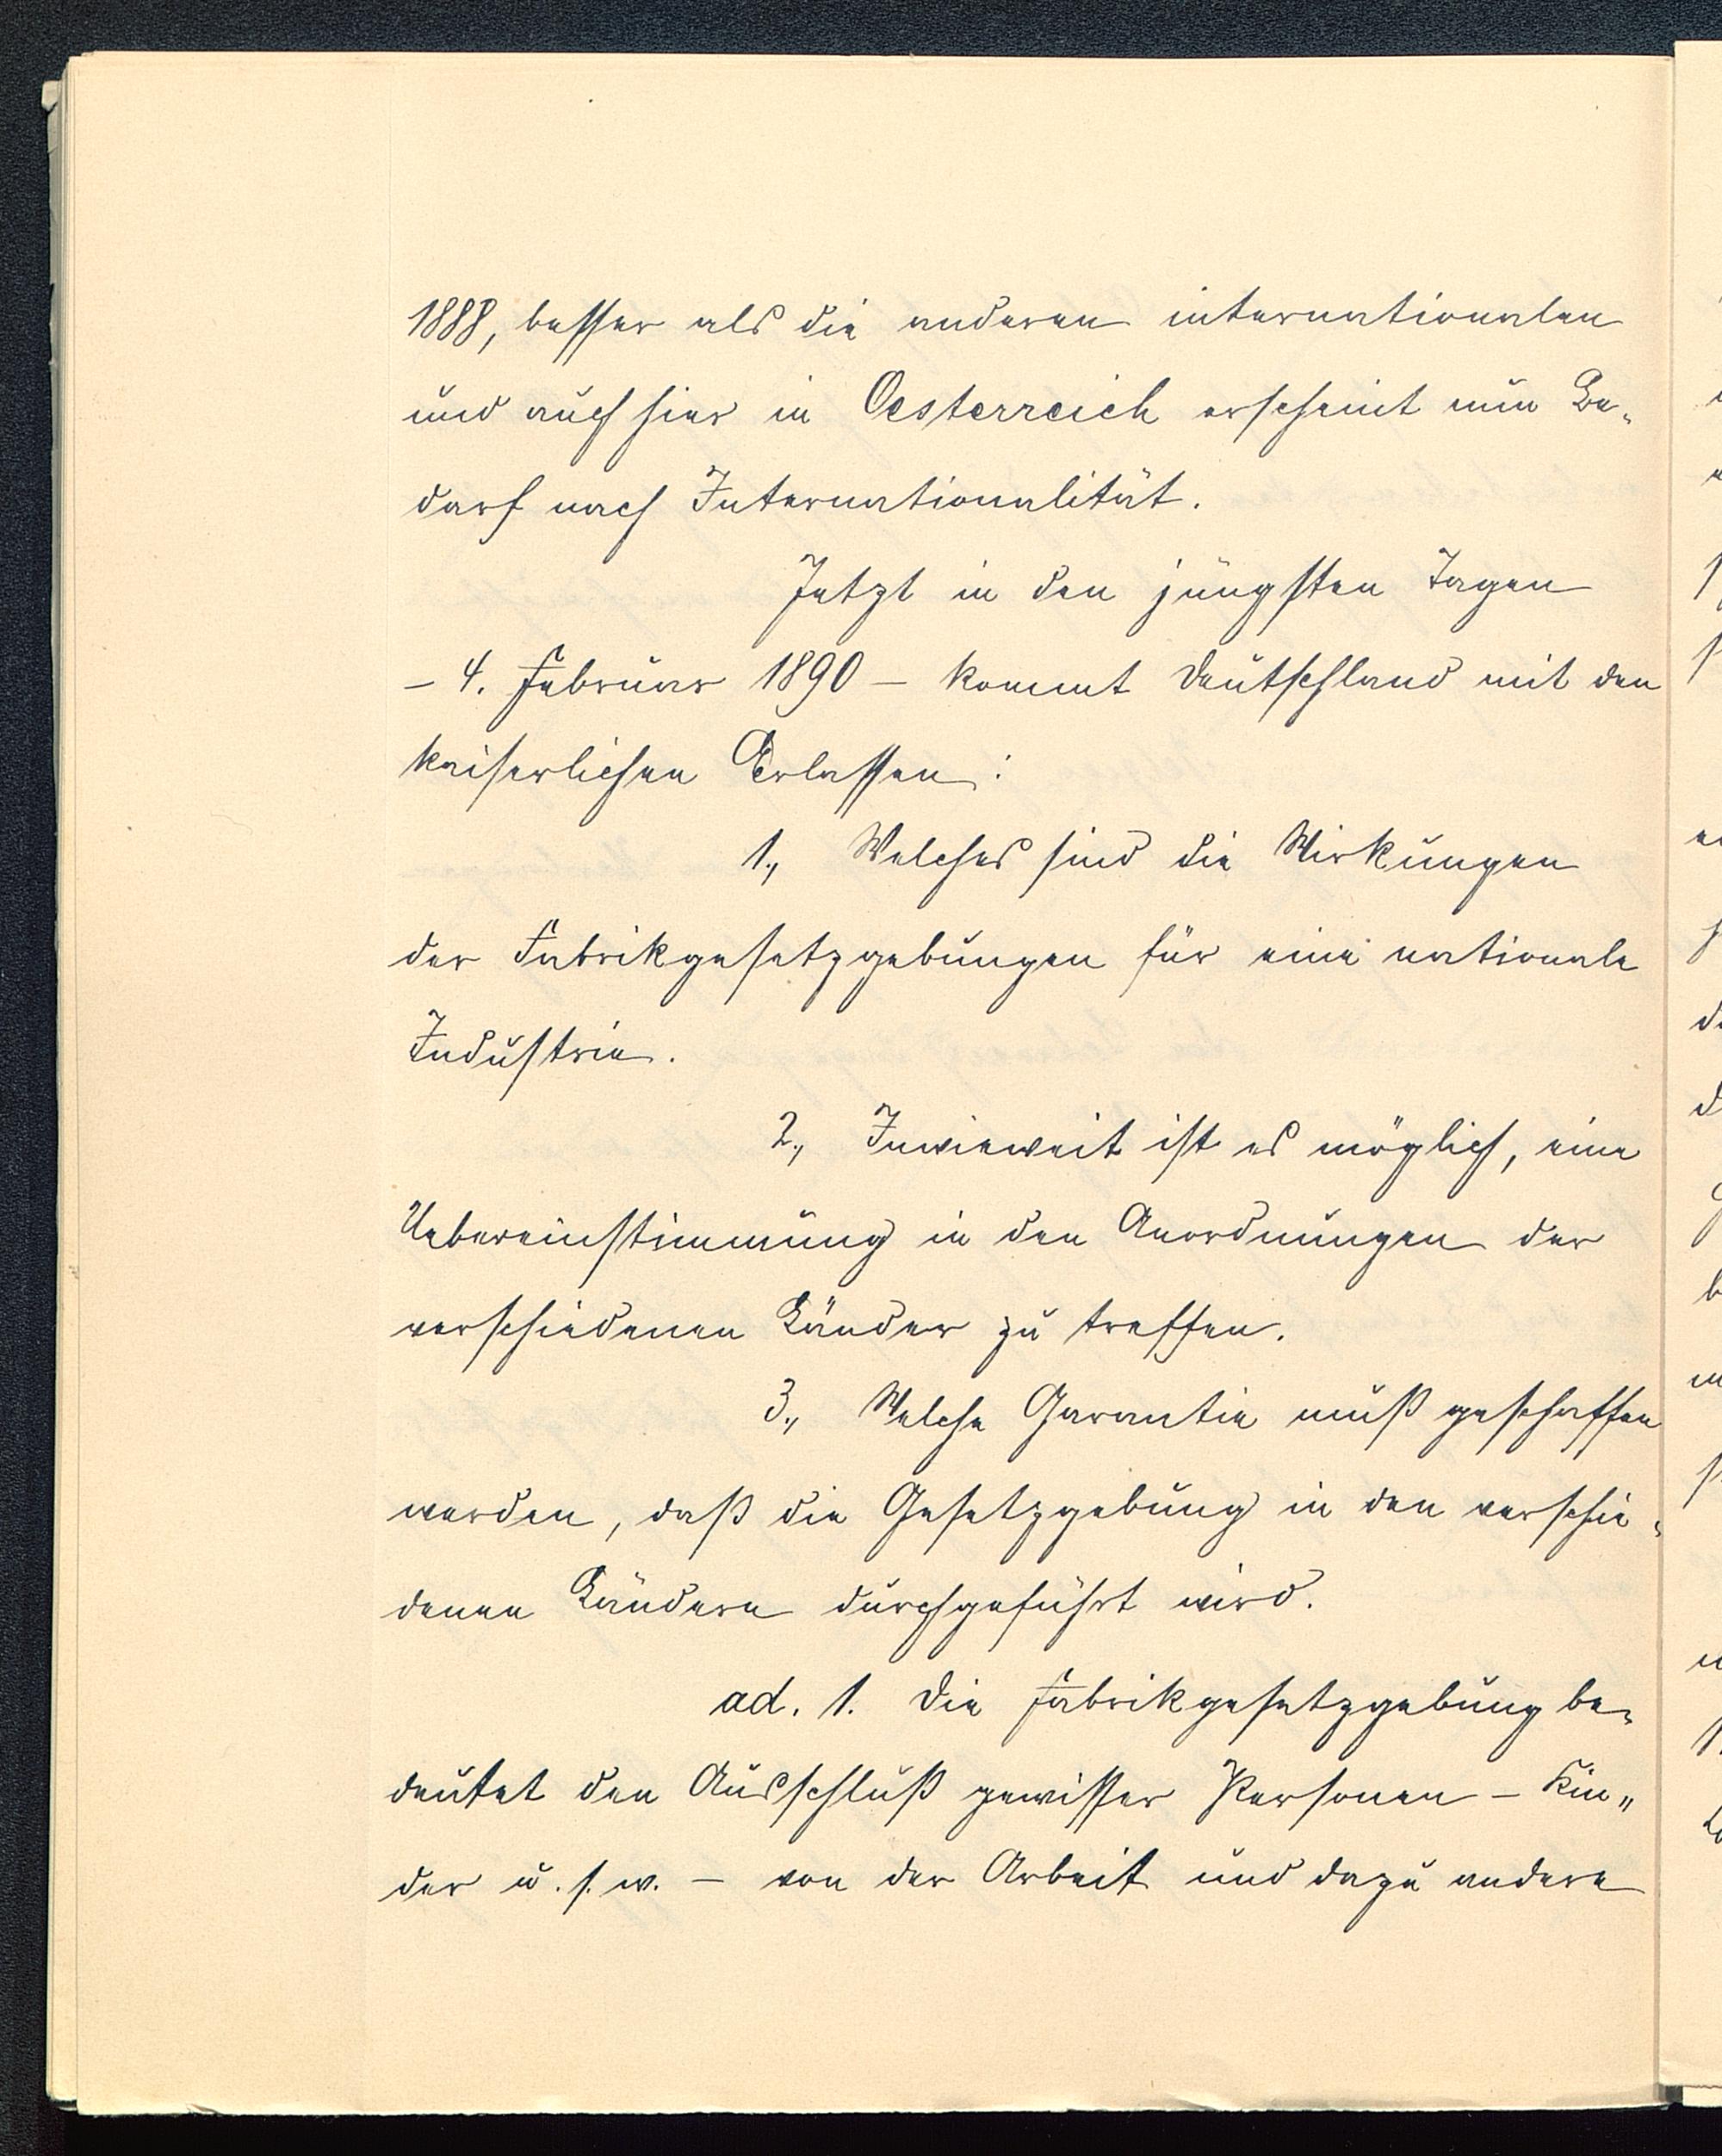 1888, besser als die anderen internationalen
und auch hier in Oesterreich erscheint nun Be-
darf nach Internationalität.
Jetzt in den jüngsten Tagen
– 4. Februar 1890 – kommt Deutschland mit den
kaiserlichen Erlassen:
1., Welches sind die Wirkungen
der Fabrikgesetzgebungen für eine nationale
Industrie.
2., Inwieweit ist es möglich, eine
Uebereinstimmung in den Anordnungen der
verschiedenen Länder zu treffen.
3., Welche Garantie muß geschaffen
werden, daß die Gesetzgebung in den verschie-
denen Ländern durchgeführt wird.
ad. 1. Die Fabrikgesetzgebung be-
deutet den Ausschluß gewisser Personen – Kin"
der u. s. w. – von der Arbeit und dazu andere